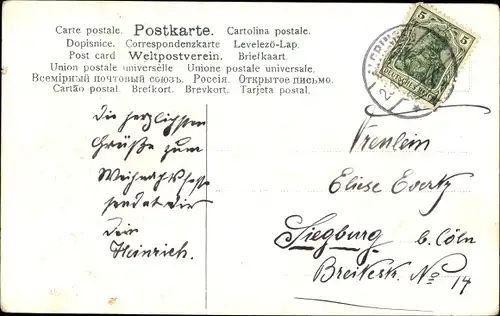 Carte postale. Postkarte. Cartolina postale.
Dopisnice. Correspondenzkarte Levelező-Lap.
Post card Weltpostverein. Briefkaart.
Union postale universelle Unione postale universale.
Всемірный почтовый союзъ. Россія. Открытое письмо.
Cartão postal. Brefkort. Brevkort. Tarjeta postal.
5 5
DEUTSCHES REICH
Die herzlichsten
Grüße zum
Weihnachtsfeste
sendet dir
Dein
Heinrich.
Freulein
Eliese Evertz
Siegburg b. Cöln
Breitestr. No 14